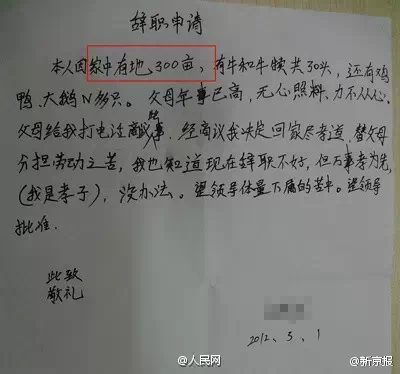 辞职申请
本人因家中有地300亩，有牛和牛犊共30头，还有鸡
鸭、大鹅N多只。父母年事已高，无心照料，力不从心。
父母给我打电话商议此事，经商议我决定回家尽孝道，替父母
分担劳动之苦，我也知道现在辞职不好，但万事孝为先，
(我是孝子)，没办法。望领导体量下属的苦中。望领导
批准.
此致
敬礼
2012、5、1
@人民网
@新京报